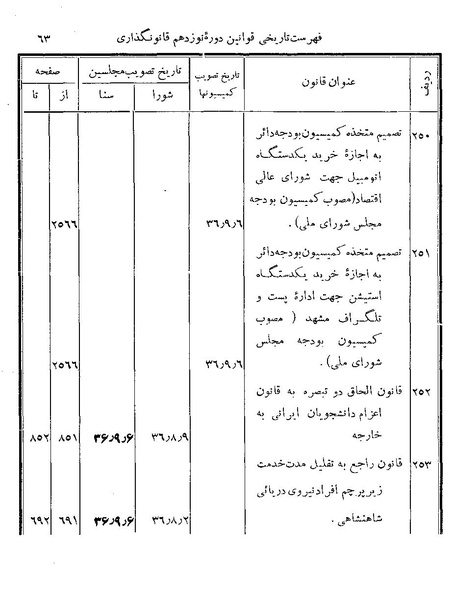 فهرست تاریخی قوانین دورهٔ نوزدهم قانونگذاری ۶۳
ردیف عنوان قانون تاریخ تصویب کمیسیونها تاریخ تصویب مجلسین صفحه
شورا سنا از تا
۲۵۰ تصمیم متخذه کمیسیون بودجه دائر
به اجازهٔ خرید یکدستگاه
اتومبیل جهت شورای عالی
اقتصاد (مصوب کمیسیون بودجه
مجلس شورای ملی). ۳۶٫۹٫۶ ۲۵۶۶
۲۵۱ تصمیم متخذه کمیسیون بودجه دائر
به اجازهٔ خرید یکدستگاه
استیشن جهت ادارهٔ پست و
تلگراف مشهد (مصوب
کمیسیون بودجه مجلس
شورای ملی). ۳۶٫۹٫۶ ۲۵۶۶
۲۵۲ قانون الحاق دو تبصره به قانون
اعزام دانشجویان ایرانی به
خارجه ۳۶٫۸٫۹ ۳۶٫۹٫۶ ۸۵۱ ۸۵۲
۲۵۳ قانون راجع به تقلیل مدت خدمت
زیر پرچم افراد نیروی دریائی
شاهنشاهی. ۳۶٫۸٫۲ ۳۶٫۹٫۶ ۶۹۱ ۶۹۲